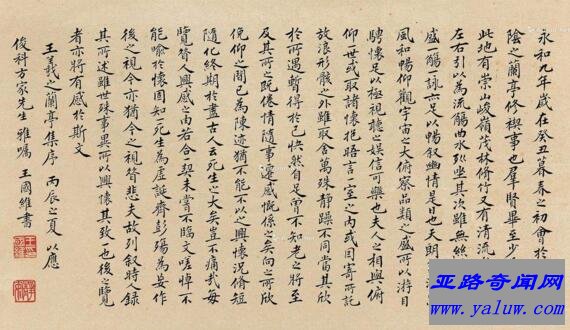 永和九年歲在癸丑暮春之初會於
陰之蘭亭修禊事也羣賢畢至少
此地有崇山峻嶺茂林脩竹又有清流
左右引以為流觴曲水列坐其次雖無絲
盛一觴一詠亦足以暢叙幽情是日也天朗
風和暢仰觀宇宙之大俯察品類之盛所以游目
騁懷足以極視聽之娛信可樂也夫人之相與俯
仰一世或取諸懷抱晤言一室之內或因寄所託
放浪形骸之外雖取舍萬殊靜躁不同當其欣
於所遇暫得於己快然自足曾不知老之將至
及其所之既倦情隨事遷感慨係之矣向之所欣
俛仰之間已為陳迹猶不能不以之興懷況脩短
隨化終期於盡古人云死生之大矣豈不痛哉每
覽昔人興感之由若合一契未嘗不臨文嗟悼不
能喻於懷固知死生為虛誕齊彭殤為妄作
後之視今亦猶今之視昔悲夫故列叙時人錄
其所述雖世殊事異所以興懷其致一也後之覽
者亦將有感於斯文
王羲之蘭亭集序 丙辰之夏 以應
俊科方家先生 雅囑 王國維書
亚路奇闻网
www.yaluw.com